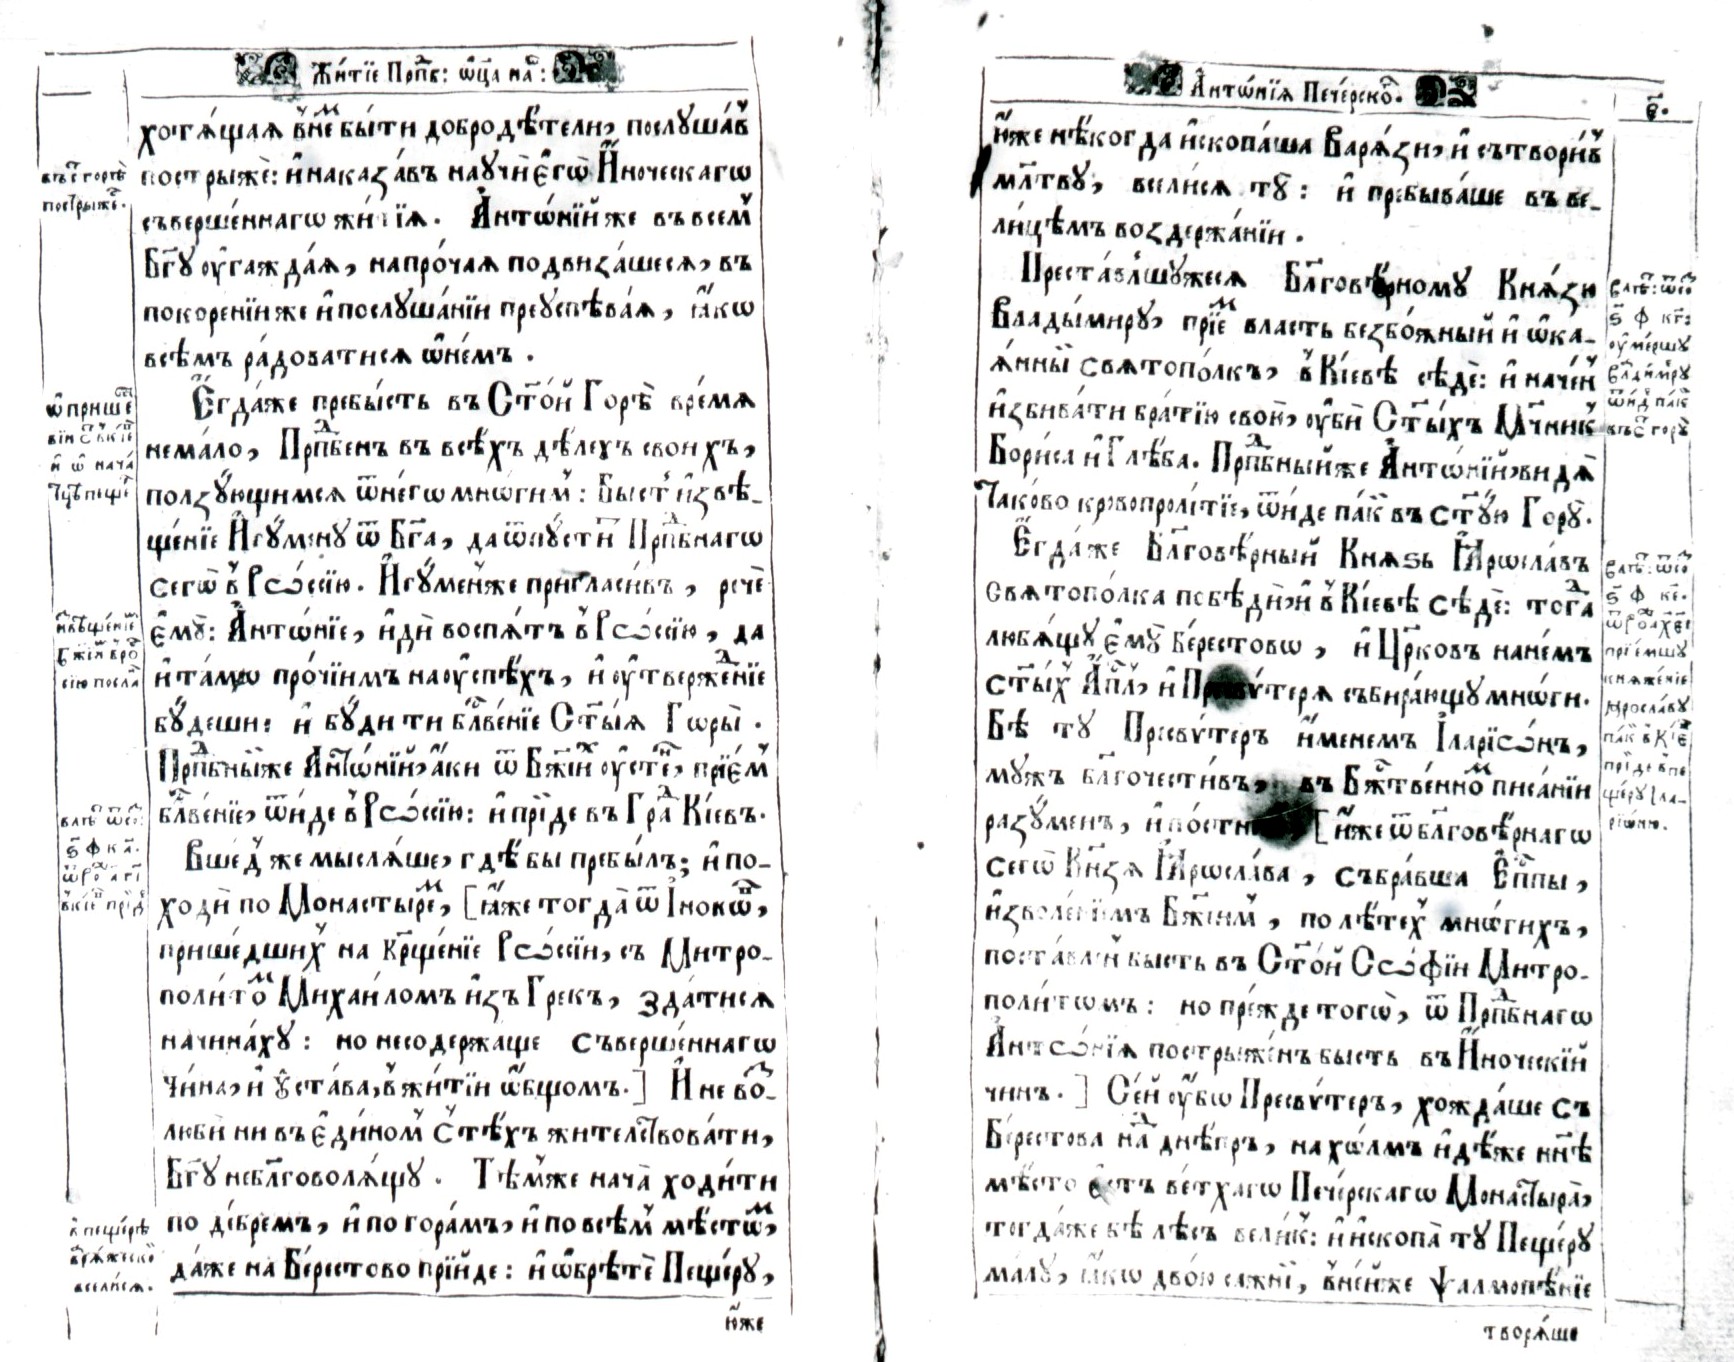 Жи́тїе Прпⷣб: ѡ҃ца на́ш:
хотѧ́щаѧ в̾не́м бы́ти добродѣ́тели, послуша́в
пострыжѐ: и҆ наказа́въ научѝ є҆го̀ И҆́ноческагѡ
съверше́ннагѡ жи́тїѧ. А҆нтѡ́нїй же въ все́м
Бг҃у ѹ҆гажда́ѧ, на про́чаѧ подвиза́шесѧ, въ
покоре́нїи же и҆ послуша́нїи преуспѣва́ѧ, ꙗ҆́кѡ
всѣ́мъ ра́доватисѧ ѡ҆ не́мъ.
Є҆гда́же пребы́сть въ Ст҃о́й Горѣ̀ вре́мѧ
нема́ло, Прпⷣбенъ въ всѣ́хъ дѣ́лехъ свои́хъ,
ползу́ющимсѧ ѿ негѡ мнѡ́гим: Бы́сть и҆звѣ-
ще́нїе И҆гу́мену ѿ Бг҃а, да ѿпу́стит Прпⷣбнагѡ
сего̀ в̾ Рѡссі́ю. И҆гу́мен же пригласи́въ, речѐ
є҆мꙋ̀: А҆нтѡ́нїе, и҆дѝ воспѧ́тъ в̾ Рѡссі́ю, да
и҆ та́мѡ про́чїимъ на ѹ҆спѣ́хъ, и҆ ѹ҆тверже́нїе
бу́деши: и҆ бу́ди ти блⷭ҇ве́нїе Ст҃ы́ѧ Горы̀.
Прпⷣбны́й же А҆нтѡ́нїй, а҆́ки ѿ Бж҃їих ѹ҆́стъ, прїе́м
блⷭ҇ве́нїе, ѿи́де в̾ Рѡссі́ю: и҆ прїи́де въ Гра́дⷣ Кі́евъ.
Вше́д же мыслѧ́ше, гдѣ́ бы пребы́лъ; и҆ по-
ходѝ по Монастыре́м, [ꙗ҆̀же тогда̀ ѿ І҆́нокѡв,
прише́дших на крⷭ҇ще́нїе Рѡссі́и, съ Митро-
поли́том Михаи́ломъ и҆з̾ Гре́къ, зда́тисѧ
начина́ху: но не содержа́ще съверше́ннагѡ
чи́на, и҆ ѹ҆ста́ва, в̾ жи́тїи ѡ҆́бщомъ.] И҆ не воз-
любѝ ни въ є҆ди́ном с̾ тѣ́хъ жи́телствовати,
Бг҃у не блг҃оволѧ́щу. Тѣ́м же нача̀ ходи́ти
по де́бремъ, и҆ по гора́мъ, и҆ по всѣ́м мѣ́стѡм,
да́же на Бе́рестово прїи́де: и҆ ѡ҆брѣ́те Пеще́ру,
ю҆́же
въ ст҃ гортѣ̀
постры́же.
ѡ҆ прише́
в̾ пеще́рѣ
варѧ́жско
всели́сѧ.
А҆нтѡ́нїѧ Пече́рскоⷢ҇.
є҃.
ю҆́же нѣ́когда и҆скопа́ша Варѧ́зи, и҆ сътвори́в
мл҃тву, всели́сѧ ту̀: и҆ пребыва́ше въ ве-
ли́цѣмъ воздержа́нїи.
Преста́влшужесѧ Блг҃овѣ́рному Кнѧ́зю
Влады́миру, прїе́м вла́сть безбо́жный и҆ ѡ҆ка-
ѧ́нный Свѧтопо́лкъ, в̾ Кі́евѣ сѣ́де: и҆ наче́н
и҆збива́ти бра́тїю свою̀, ѹ҆бѝ Ст҃ы́хъ Мч҃ник
Бори́са и҆ Глѣ́ба. Прпⷣбный же А҆нтѡ́нїй, ви́дѧ
таково̀ кровопроли́тїе, ѿи́де па́к въ ст҃у́ю Го́ру.
Є҆гда́же Блг҃овѣ́рный Кнѧ́ѕь Ꙗ҆росла́въ
Свѧтопо́лка побѣдѝ, и҆ в̾ Кі́евѣ сѣ́де: тогⷣа
любѧ́щу є҆мꙋ̀ Бе́рестовѡ, и҆ Цр҃ковъ на не́мъ
ст҃ы́х А҆пⷭ҇л, и҆ Пресвѵ́терѧ събира́ющу мнѡ́ги.
Бѣ̀ ту̀ Пресвѵ́теръ и҆́менемъ І҆ларїѡ́нъ,
му́жъ блг҃очести́въ, въ Бжⷭ҇твенном писа́нїи
разу́менъ, и҆ по́стник, [и҆́же ѿ блг҃овѣ́рнагѡ
сего̀ Кн҃зѧ Ꙗ҆росла́ва, събра́вша Є҆пⷭ҇пы,
и҆зволе́нїемъ Бж҃їим, по лѣ́тех мнѡ́гихъ,
поста́влен бы́сть въ Ст҃о́й Сѡфі́и Митро-
поли́томъ: но пре́жде тогѡ̀, ѿ Прпⷣбнагѡ
А҆нтѡ́нїѧ постриже́нъ бы́сть въ И҆́ноческїй
чи́нъ.] Се́й ѹ҆́бѡ Пресвѵ́теръ, хожда́ше съ
Бе́рестова на́дⷣ днѣ́пръ, на хо́лмъ и҆дѣ́же нн҃ѣ
мѣ́сто є҆́стъ ве́тхагѡ Пече́рскагѡ Монастырѧ̀,
тогда́же бѣ̀ лѣ́съ вели́к: и҆ и҆скопа̀ ту̀ Пеще́ру
ма́лу, ꙗ҆́кѡ двою̀ са́жнїй, в̾ не́йже ѱалмопѣ́нїе
творѧ́ше